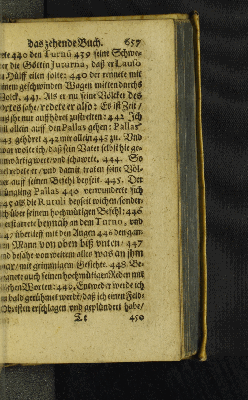 das zehende Buch. 657
rete 440 den Turnū 439 seine Schwe-
ter die Göttin Juturna, daß er Lauso
zu Hülff eilen solte: 440 der rennete mit
seinem geschwinden Wagen mitten durchs
Volck. 441. Als er nu seine Völcker des
Ortes sahe/ redete er also: Es ist Zeit/
daß ihr nur auffhöret zustreiten: 442 Ich
will allein auf den Pallas gehen: Pallas
443 gehöret 442 mir allein 443 zu. Und
wolte ich/ daß sein Vater selbst hie ge-
genwärtig wert/ und schawete. 444. So
redete er/ und damit traten seine Völ-
cker auf seinen Befehl beyseit. 445. Der
Jüngling Pallas 440 verwunderte sich
445 als die Rutuli beyseit wichen/ sonder-
lich über seinem hochmütigen Befehl: 446
erstarrete beynah an dem Turno, und
447 überlieff mit den Augen 446 den gan-
tzen Mann von oben biß unten/ 447
und besahe von weitem alles was an ihm
war/ mit grimmigem Gesichte. 448. Be-
gegnete auch seinen hochmütigen Reden mit
solchen Worten: 449. Entweder werde ich
nu bald gerühmet werde/ daß ich einen Feld-
Obristen erschlagen und geplündert habe/
Tt 450